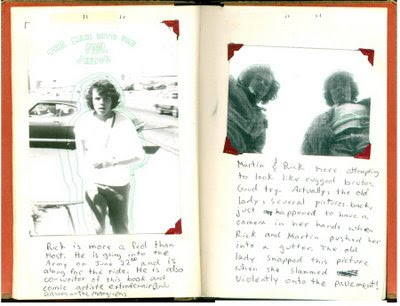 THE MAN WITH THE
FOOL
Rick is more a fool than
most. He is going into the
Army on June 22nd and is
along for the ride. He is also
co-writer of this book and
comic artiste extrordinaire.
Martin & Rick here attempting
to look like rugged brutes.
Good try. Actually, the old
lady, several pictures back,
just happened to have a
camera in her hands when
Rick and Martin pushed her
into a gutter. The old
lady snapped this picture
when she slammed
violently onto the pavement!